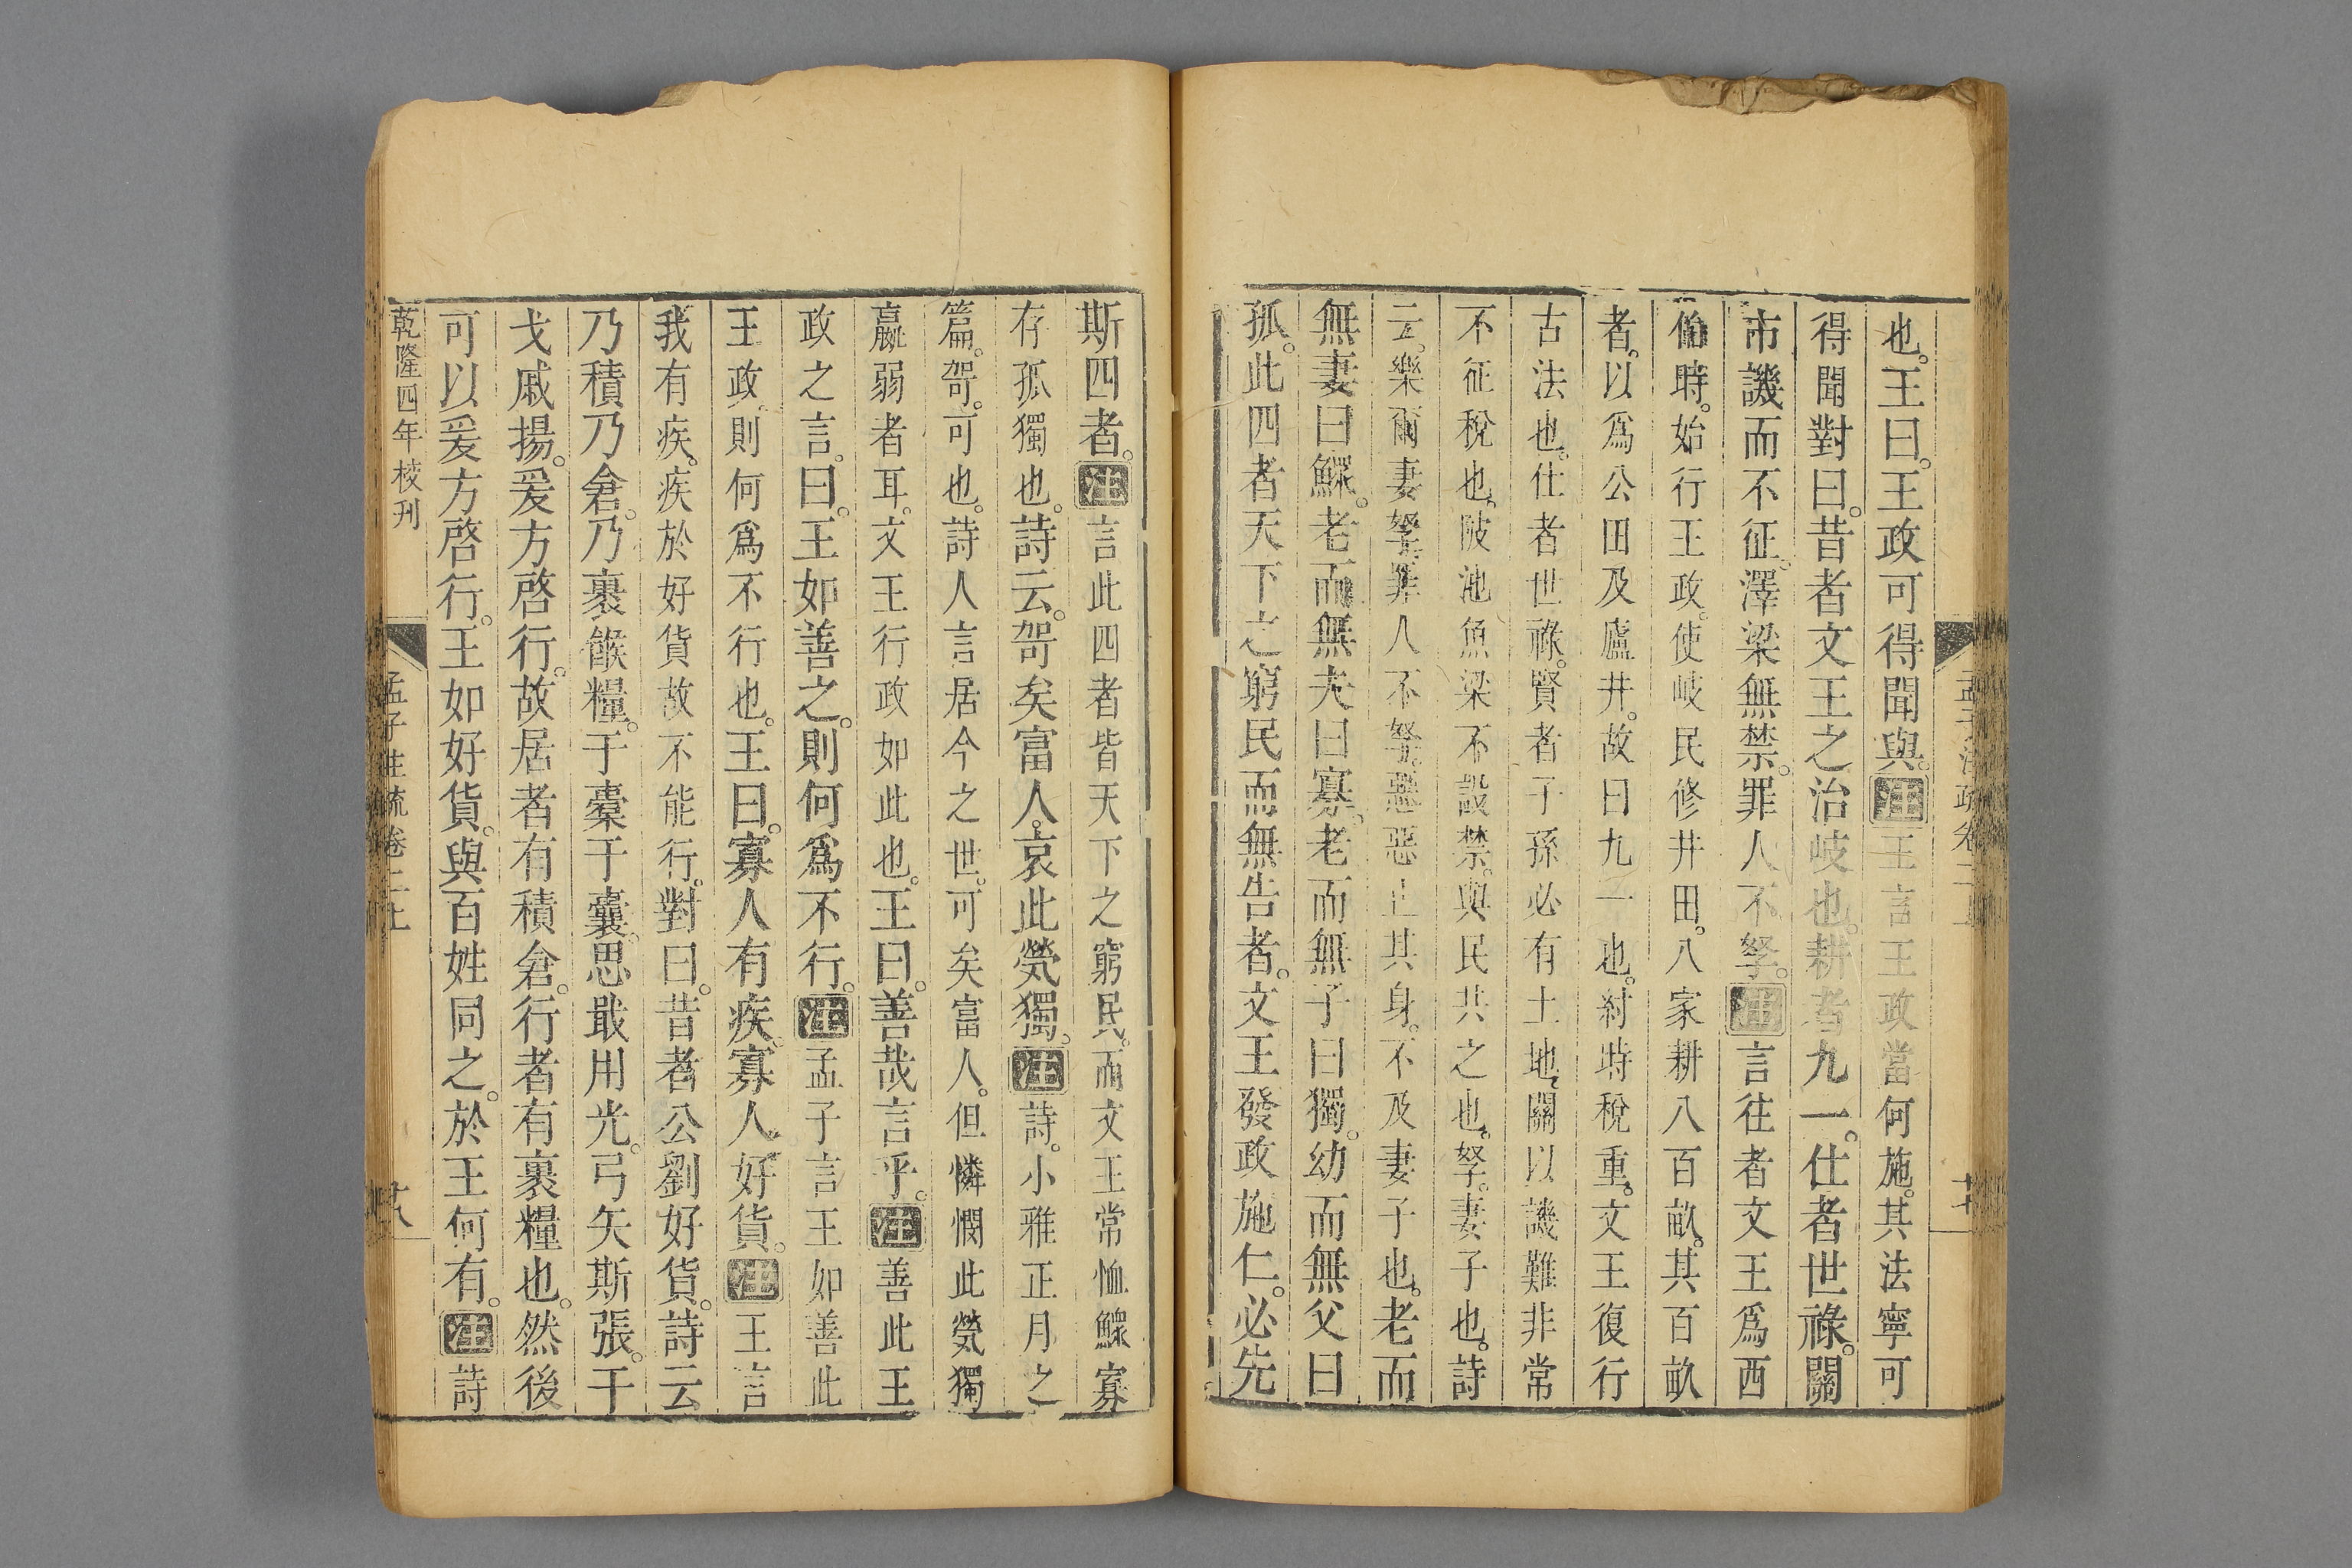 也。王曰。王政可得聞與。注王言王政當何施。其法寧可
得聞對曰。昔者文王之治岐也。耕者九一。仕者世祿。關
市譏而不征。澤梁無禁。罪人不孥。注言往者文王爲西
伯時。始行王政。使岐民修井田。八家耕八百畝。其百畝
者。以爲公田及廬井。故曰九一也。紂時稅重。文王復行
古法也。仕者世祿。賢者子孫必有土地。關以譏難非常
不征稅也。陂池魚梁不設禁。與民共之也。孥。妻子也。詩
云。樂爾妻孥罪人不孥。惡惡止其身。不及妻子也。老而
無妻曰鰥。老而無夫曰寡。老而無子曰獨。幼而無父曰
孤。此四者天下之窮民而無告者。文王發政施仁。必先
斯四者。注言此四者皆天下之窮民。而文王常恤鰥寡
存孤獨也。詩云。哿矣富人。哀此煢獨。注詩。小雅正月之
篇。哿。可也。詩人言居今之世。可矣富人。但憐憫此煢獨
羸弱者耳。文王行政如此也。王曰。善哉言乎。注善此王
政之言。曰。王如善之。則何爲不行。注孟子言王如善此
王政。則何爲不行也。王曰。寡人有疾。寡人好貨。注王言
我有疾。疾於好貨故不能行。對曰。昔者公劉好貨。詩云
乃積乃倉。乃裹餱糧。于橐于囊。思戢用光。弓矢斯張。干
戈戚揚。爰方啓行。故居者有積倉。行者有裹糧也。然後
可以爰方啓行。王如好貨。與百姓同之。於王何有。注詩
乾隆四年校刊
孟子注疏卷二上
十八